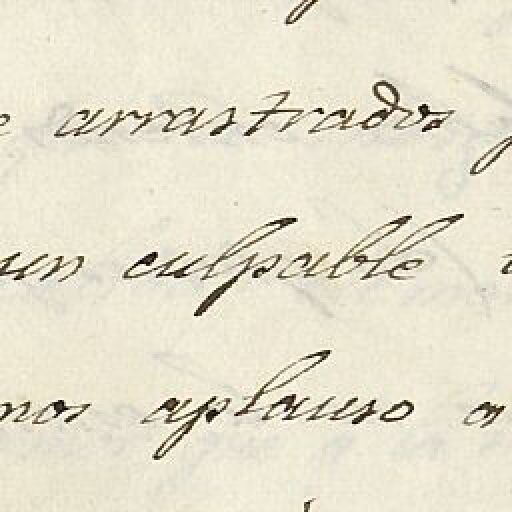 arrastrados
un culpable
nos aplauso a